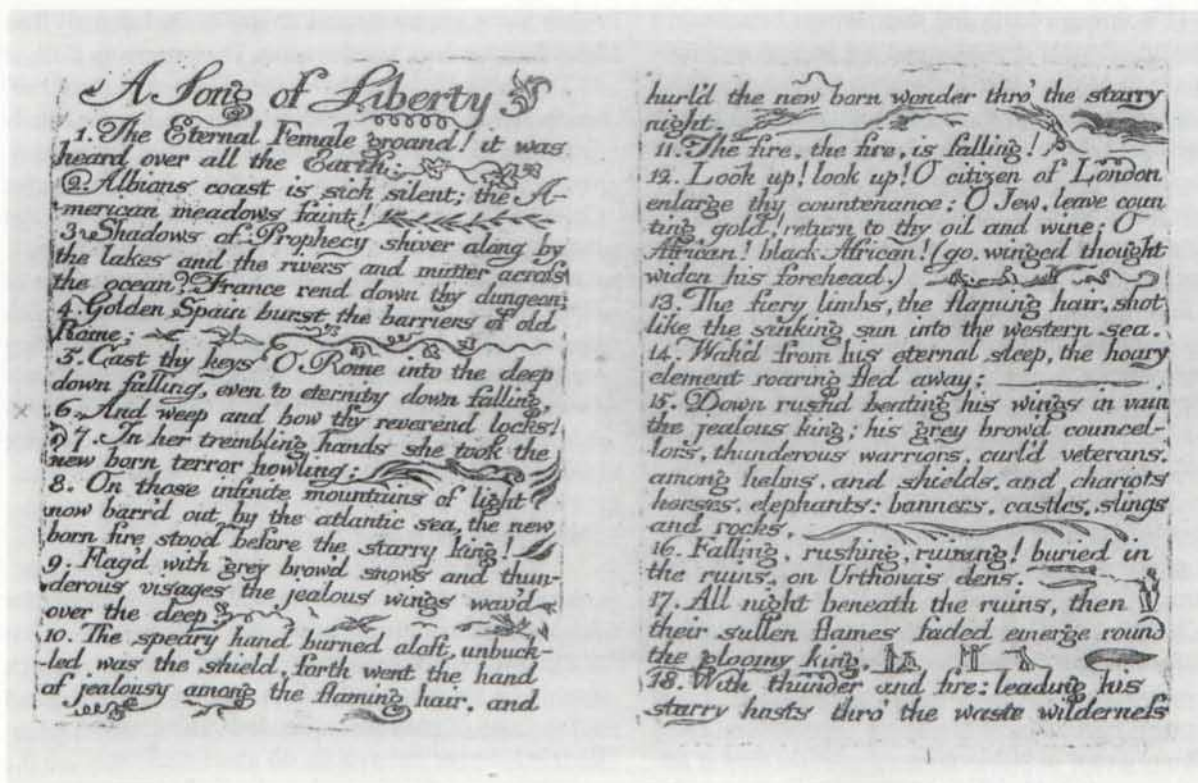 A Song of Liberty
1. The Eternal Female groand! it was
heard over all the Earth:
2. Albions coast is sick silent; the A-
merican meadows faint!
3. Shadows of Prophecy shiver along by
the lakes and the rivers and mutter across
the ocean? France rend down thy dungeon;
4. Golden Spain burst the barriers of old
Rome;
5. Cast thy keys O Rome into the deep
down falling, even to eternity down falling,
6. And weep and bow thy reverend locks!
7. In her trembling hands she took the
new born terror howling:
8. On those infinite mountains of light
now barr'd out by the atlantic sea, the new
born fire stood before the starry king!
9. Flag'd with grey brow'd snows and thun-
derous visages the jealous wings wav'd
over the deep
10. The speary hand burned aloft, unbuck-
-led was the shield, forth went the hand
of jealousy among the flaming hair, and
hurl'd the new born wonder thro' the starry
night.
11. The fire, the fire, is falling!
12. Look up! look up! O citizen of London
enlarge thy countenance; O Jew, leave coun
ting gold! return to thy oil and wine; O
African! black African! (go. winged thought
widen his forehead.)
13. The fiery limbs, the flaming hair, shot
like the sinking sun into the western sea.
14. Wak'd from his eternal sleep, the hoary
element roaring fled away:
15. Down rushd beating his wings in vain
the jealous king; his grey brow'd councel-
lors, thunderous warriors, curl'd veterans,
among helms, and shields, and chariots
horses, elephants: banners, castles, slings
and rocks.
16. Falling, rushing, ruining! buried in
the ruins, on Urthona's dens.
17. All night beneath the ruins, then
their sullen flames faded emerge round
the gloomy king.
18. With thunder and fire: leading his
starry hosts thro' the waste wilderness